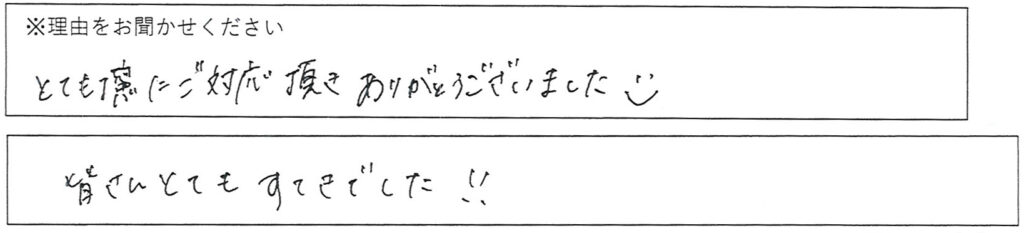 ※理由をお聞かせください
とても慎にご対応頂きありがとうございました
皆さんとてもすてきでした !!